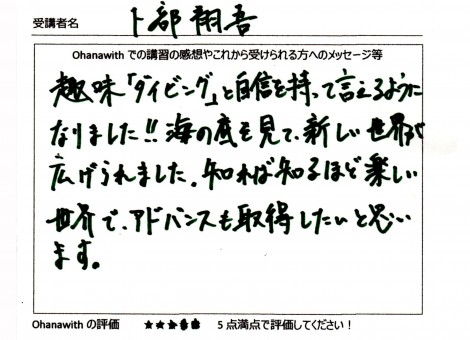 受講者名 卜部翔吾
Ohanawith での講習の感想やこれから受けられる方へのメッセージ等
趣味「ダイビング」と自信を持って言えるように
なりました!! 海の底を見て、新しい世界が
広げられました。知れば知るほど楽しい
世界で、アドバンスも取得したいと思い
ます。
Ohanawith の評価 ★★★★★ 5 点満点で評価してください！